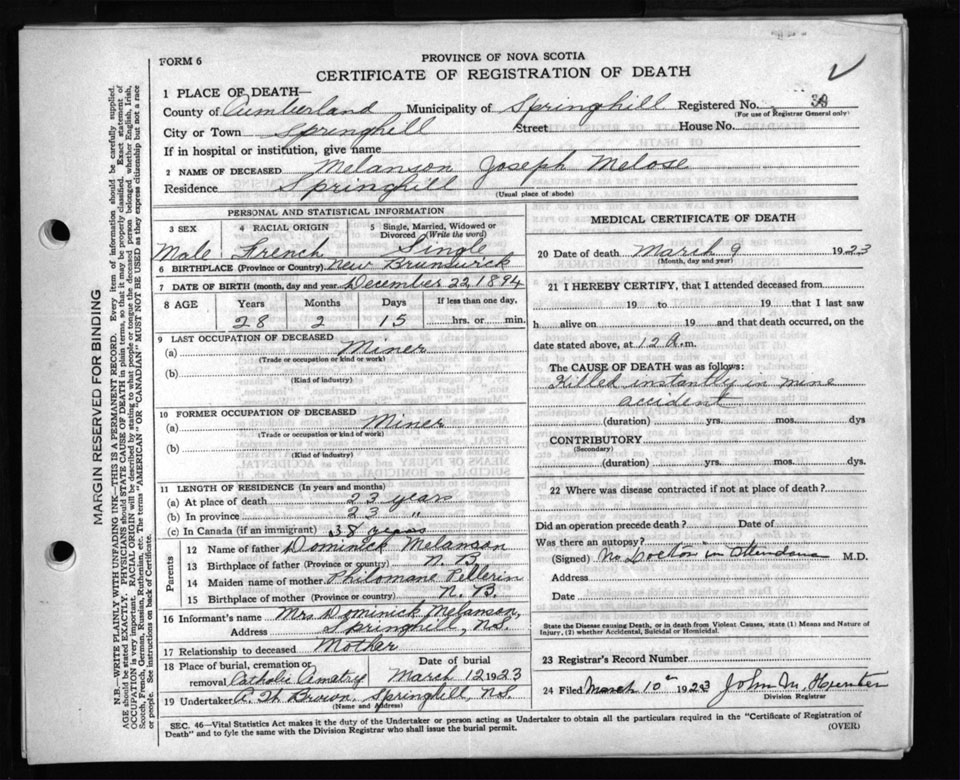 FORM 6
PROVINCE OF NOVA SCOTIA
CERTIFICATE OF REGISTRATION OF DEATH
1 PLACE OF DEATH—
County of Cumberland Municipality of Springhill Registered No.
(For use of Registrar General only)
City or Town Springhill Street House No.
If in hospital or institution, give name
2 NAME OF DECEASED Melanson Joseph Melose
Residence Springhill
(Usual place of abode)
PERSONAL AND STATISTICAL INFORMATION
3 SEX 4 RACIAL ORIGIN 5 Single, Married, Widowed or Divorced (Write the word)
Male French Single
6 BIRTHPLACE (Province or Country) New Brunswick
7 DATE OF BIRTH (month, day and year) December 22, 1894
8 AGE Years Months Days If less than one day,
28 2 15 hrs. or min.
9 LAST OCCUPATION OF DECEASED
(a) Miner
(Trade or occupation or kind or work)
(b)
(Kind of industry)
10 FORMER OCCUPATION OF DECEASED
(a) Miner
(Trade or occupation or kind of work)
(b)
(Kind of industry)
11 LENGTH OF RESIDENCE (In years and months)
(a) At place of death 23 years
(b) In province 23 "
(c) In Canada (if an immigrant) 38 years
Parents
12 Name of father Dominick Melanson
13 Birthplace of father (Province or country) N. B.
14 Maiden name of mother Philomane Pellerin
15 Birthplace of mother (Province or country) N. B.
16 Informant's name Mrs Dominick Melanson,
Address Springhill, N.S.
17 Relationship to deceased Mother
18 Place of burial, cremation or removal Catholic Date of burial March 12 1923
19 Undertaker A. W. Brown, Springhill, N.S.
(Name and Address)
MEDICAL CERTIFICATE OF DEATH
20 Date of death March 9 1923
(Month, day and year)
21 I HEREBY CERTIFY, that I attended deceased from
19 to 19 that I last saw
h alive on 19 and that death occurred, on
date stated above, at 12 a.m.
The CAUSE OF DEATH was as follows:
Killed instantly in mine
accident
(duration) yrs. mos. dys
CONTRIBUTORY
(Secondary)
(duration) yrs. mos. dys.
22 Where was disease contracted if not at place of death?
Did an operation precede death? Date of
Was there an autopsy?
(Signed) No Doctor in attendance M.D.
Address
Date
State the Disease causing Death, or in death from Violent Causes, state (1) Means and Nature of
Injury, (2) whether Accidental, Suicidal or Homicidal.
23 Registrar's Record Number
24 Filed March 10th 1923 John M
Division Registrar
SEC. 46—Vital Statistics Act makes it the duty of the Undertaker or person acting as Undertaker to obtain all the particulars required in the "Certificate of Registration of
Death" and to fyle the same with the Division Registrar who shall issue the burial permit.
(OVER)
MARGIN RESERVED FOR BINDING
N.B.—WRITE PLAINLY WITH UNFADING INK—THIS IS A PERMANENT RECORD. Every item of information should be carefully supplied.
AGE should be stated EXACTLY. PHYSICIANS should STATE CAUSE OF DEATH in plain terms, so that it may be properly classified. Exact statement of
OCCUPATION is very important. RACIAL ORIGIN will be described by stating to what people or tongue the deceased person belonged whether English, Irish,
Scotch, French, German, Russian, Ruthenian, etc. The terms "AMERICAN" OR "CANADIAN" MUST NOT BE USED as they express citizenship but not a race
or people. See instructions on back of Certificate.